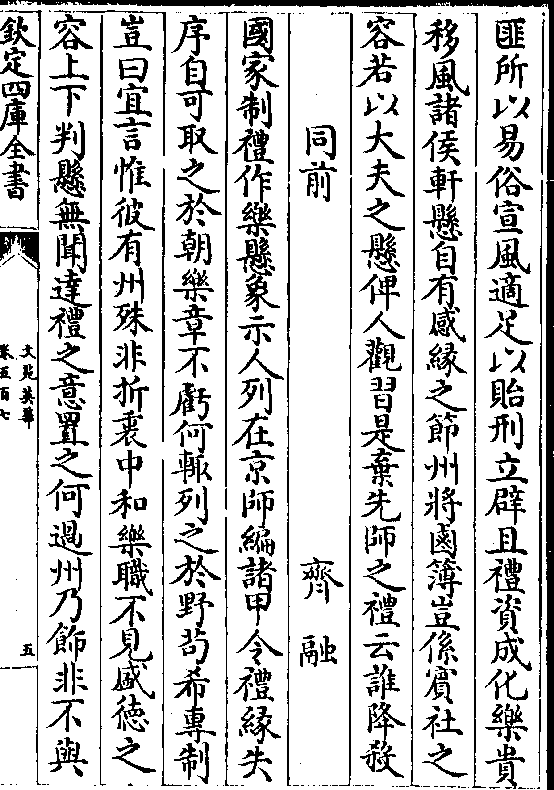 匪所以易俗宣風適足以貽刑立辟且禮資成化樂貴
移風諸侯軒懸自有感縁之節州將鹵簿豈係賓社之
容若以大夫之懸俾人觀習是棄先師之禮云誰降殺
同前 齊融
國家制禮作樂懸象示人列在京師編諸甲令禮縁失
序自可取之於朝樂章不虧何輙列之於野苟希專制
豈曰宜言惟彼有州殊非折衷中和樂職不見盛徳之
容上下判懸無聞達禮之意置之何過州乃飾非不與
欽定四庫全書
文苑英華
卷五百七
五